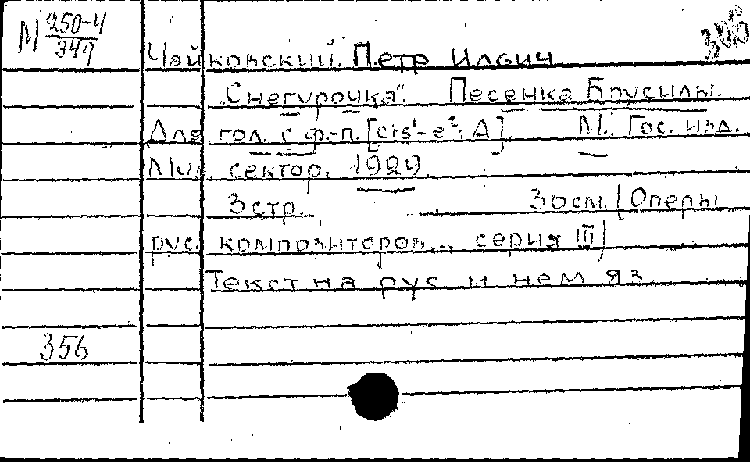 М 250-4
349
Чайковский, Петр Ильич
"Снегурочка". Песенка Брусилы.
Для гол. с ф.-п. [cis¹-e²; A]. М. Гос. изд.
Муз. сектор. 1929.
3 стр. 30 см. (Оперы
рус. композиторов... серия III)
Текст на рус и нем яз
356